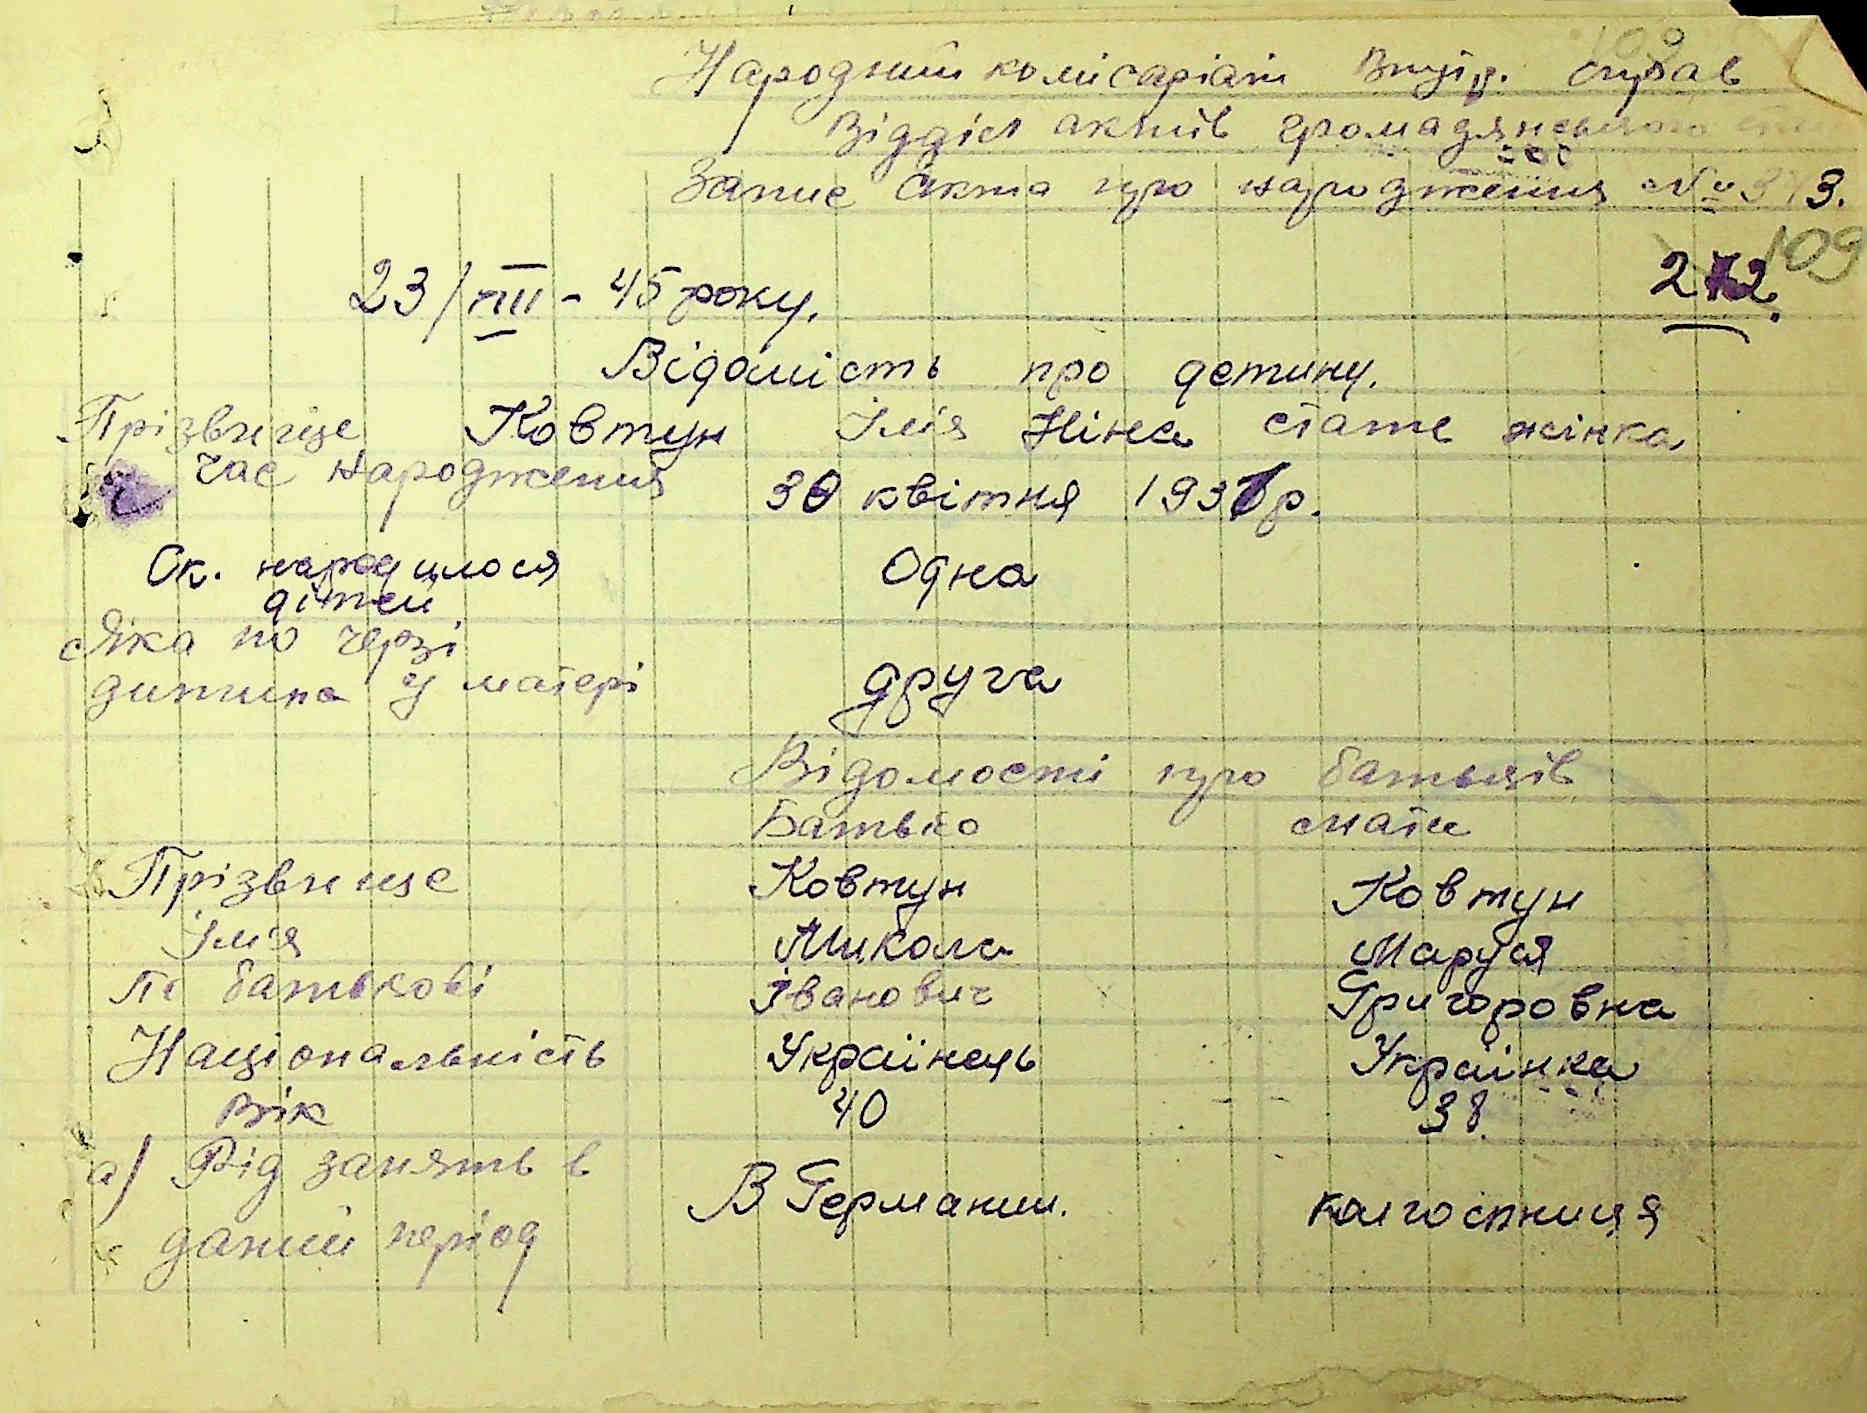 Народний комісаріат Внутр. справ
Відділ актів громадянського
Запис акта про народження №
109
23/VIII - 45 року. 272.
Відомість про детину.
Прізвище Ковтун Імія Ніна стате жінка
Час народження 30 квітня 1931 р.
Ск. народилося дітей Одна
Яка по черзі
дитина у матері друга
Відомості про батьків
Батько мати
Прізвище Ковтун Ковтун
Імія Микола Маруся
По батькові Іванович Григоровна
Національність Українець Українка
Вік 40 38.
а) Рід занять в
даний період В Германии. колгоспниця